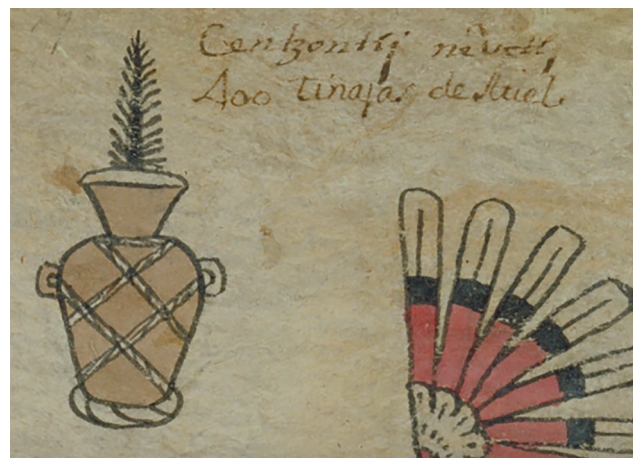 Centzontli necutli
400 tinajas de Miel